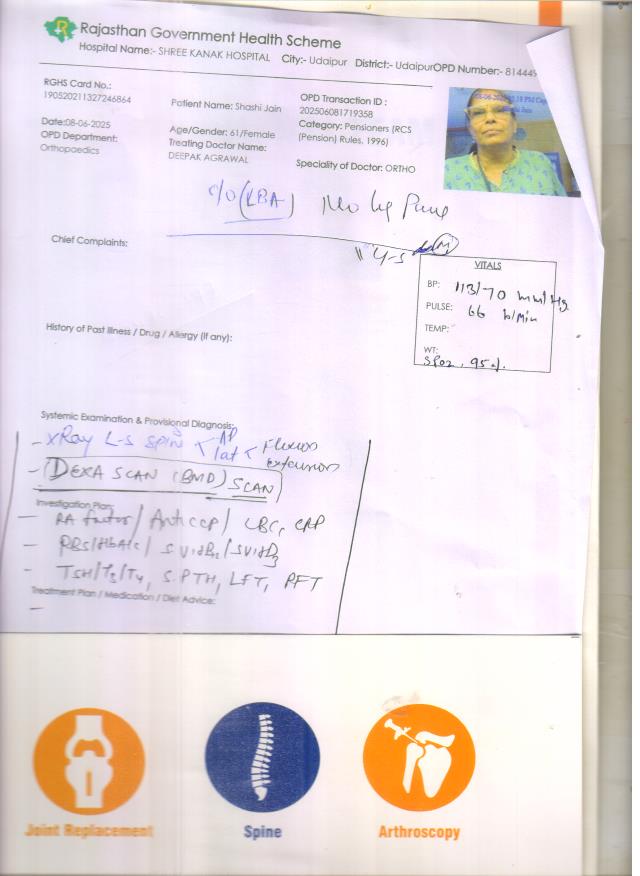 Rajasthan Government Health Scheme
Hospital Name:- SHREE KANAK HOSPITAL City:- Udaipur District:- Udaipur OPD Number:- 814449
RGHS Card No.:
190520211327246864
Patient Name: Shashi Jain
OPD Transaction ID :
202506081719358
Date:08-06-2025
OPD Department:
Orthopaedics
Age/Gender: 61/Female
Treating Doctor Name:
DEEPAK AGRAWAL
Category: Pensioners (RCS
(Pension) Rules, 1996)
Speciality of Doctor: ORTHO
c/o (LBA)
Chief Complaints:
VITALS
BP: 113/70 mm/Hg
PULSE: 66 b/min
TEMP:
WT:
SPO2, 95%
History of Past Illness / Drug / Allergy (if any):
Systemic Examination & Provisional Diagnosis:
- XRay L-S Spine AP
lat
extension
- (DEXA SCAN (BMD) SCAN
Investigation Plan:
- RA factor / Anti CCP / CBC, CRP
- RBS/HbA1c/
- TSH/T3/T4, S.PTH, LFT, RFT
Treatment Plan / Medication / Diet Advice:
-
Joint Replacement
Spine
Arthroscopy